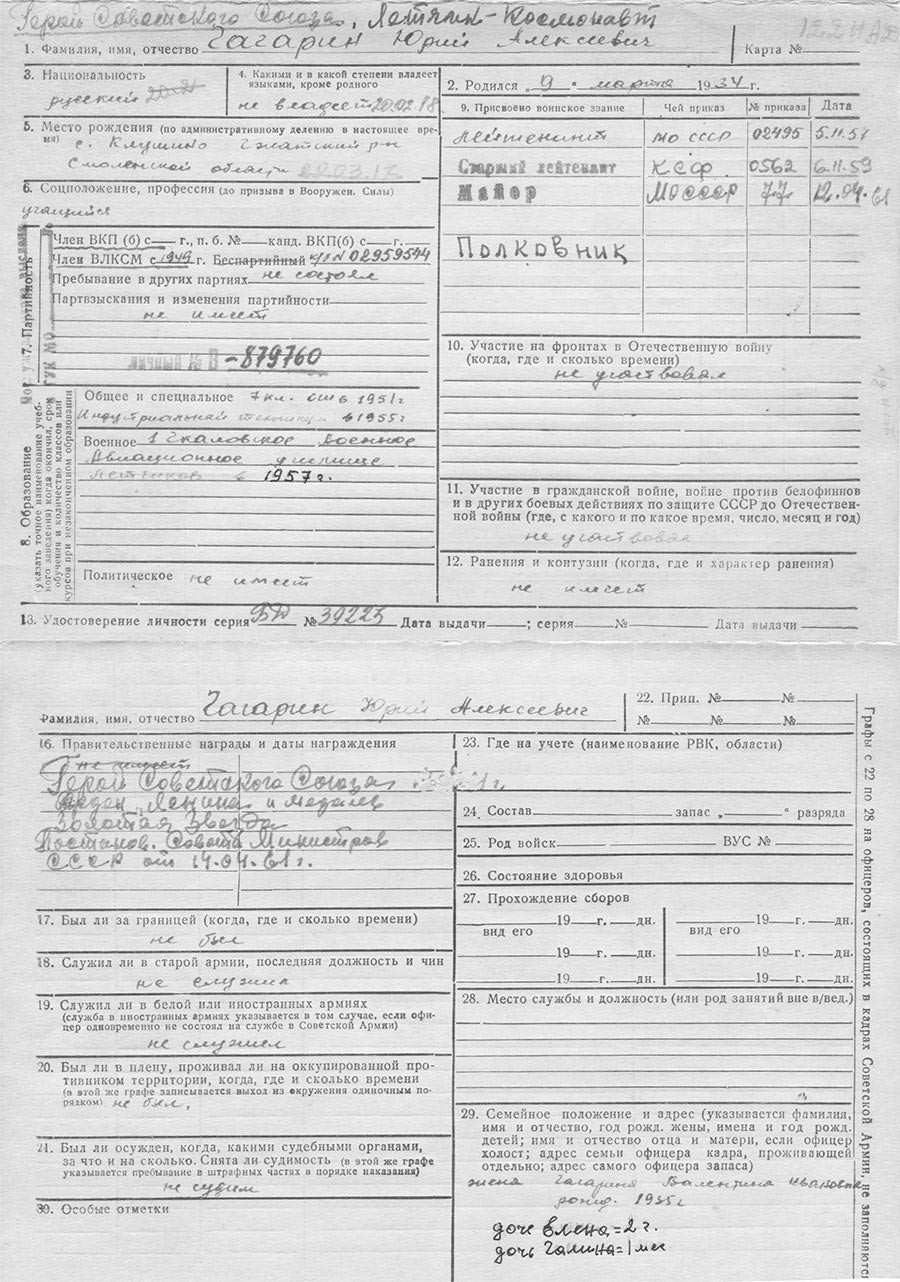 Герой Советского Союза, Летчик-Космонавт
122НАД
1. Фамилия, имя, отчество Гагарин Юрий Алексеевич
Карта №
3. Национальность
русский
4. Какими и в какой степени владеет
языками, кроме родного
не владеет 20.02.18
2. Родился „9“ марта 1934 г.
5. Место рождения (по административному делению в настоящее вре-
мя) с. Клушино Гжатский р-н
Смоленской области 22.03.17
6. Соцположение, профессия (до призыва в Вооружен. Силы)
учащийся
9. Присвоено воинское звание Чей приказ № приказа Дата
Лейтенант МО СССР 02495 5.11.57
Старший лейтенант КСФ 0562 6.11.59
Майор МО СССР 77 12.04.61
Полковник
7. Партийность
Член ВКП (б) с г., п. б. № канд. ВКП(б) с г.
Член ВЛКСМ с 1949 г. Беспартийный ч/б № 02959544
Пребывание в других партиях не состоял
Партвзыскания и изменения партийности
не имеет
ГУК МО
Личный № В -879760
10. Участие на фронтах в Отечественную войну
(когда, где и сколько времени)
не участвовал
8. Образование
(указать точное наименование учеб-
ного заведения) когда окончил, срок
обучения и количество классов или
курсов при незаконченном образовании
Общее и специальное 7 кл. с/ш в 1951 г
Индустриальный техникум в 1955 г
Военное 1 Чкаловское Военное
Авиационное училище
летчиков в 1957 г.
Политическое не имеет
11. Участие в гражданской войне, войне против белофиннов
и в других боевых действиях по защите СССР до Отечествен-
ной войны (где, с какого и по какое время, число, месяц и год)
не участвовал
12. Ранения и контузии (когда, где и характер ранения)
не имеет
13. Удостоверение личности серия БД № 39223 Дата выдачи ; серия № Дата выдачи
Фамилия, имя, отчество Гагарин Юрий Алексеевич
22. Прип. № №
№ № №
16. Правительственные награды и даты награждения
не имеет
Герой Советского Союза
Орден Ленина и медаль
Золотая Звезда
Постанов. Совета Министров
СССР от 14.04.61 г.
17. Был ли за границей (когда, где и сколько времени)
не был
18. Служил ли в старой армии, последняя должность и чин
не служил
19. Служил ли в белой или иностранных армиях
(служба в иностранных армиях указывается в том случае, если офи-
цер одновременно не состоял на службе в Советской Армии)
не служил
20. Был ли в плену, проживал ли на оккупированной про-
тивником территории, когда, где и сколько времени
(в этой же графе записывается выход из окружения одиночным по-
рядком) не был.
21. Был ли осужден, когда, какими судебными органами,
за что и на сколько. Снята ли судимость (в этой же графе
указывается пребывание в штрафных частях в порядке наказания)
не судим
30. Особые отметки
23. Где на учете (наименование РВК, области)
24. Состав запас „ “ разряда
25. Род войск ВУС №
26. Состояние здоровья
27. Прохождение сборов
19 г. дн. 19 г. дн.
вид его вид его
19 г. дн. 19 г. дн.
19 г. дн. 19 г. дн.
28. Место службы и должность (или род занятий вне в/вед.)
29. Семейное положение и адрес (указывается фамилия,
имя и отчество, год рожд. жены, имена и год рожд.
детей; имя и отчество отца и матери, если офицер
холост; адрес семьи офицера кадра, проживающей
отдельно; адрес самого офицера запаса)
жена Гагарина Валентина Ивановна
рожд. 1935 г
дочь Елена=2 г.
дочь Галина=1 мес
Графы с 22 по 28 на офицеров, состоящих в кадрах Советской Армии, не заполняются